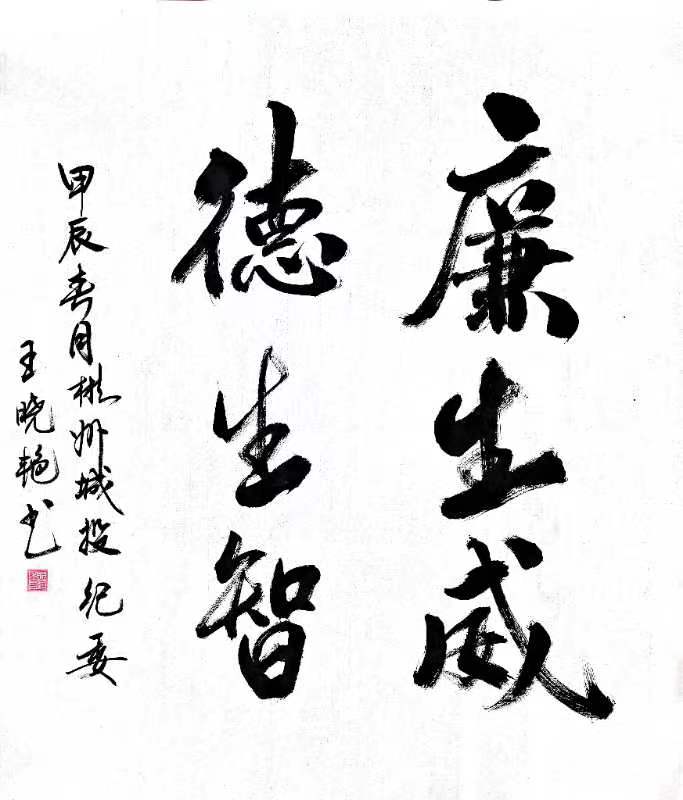 廉生威
德生智
甲辰春月彬州城投纪委
王晓艳书